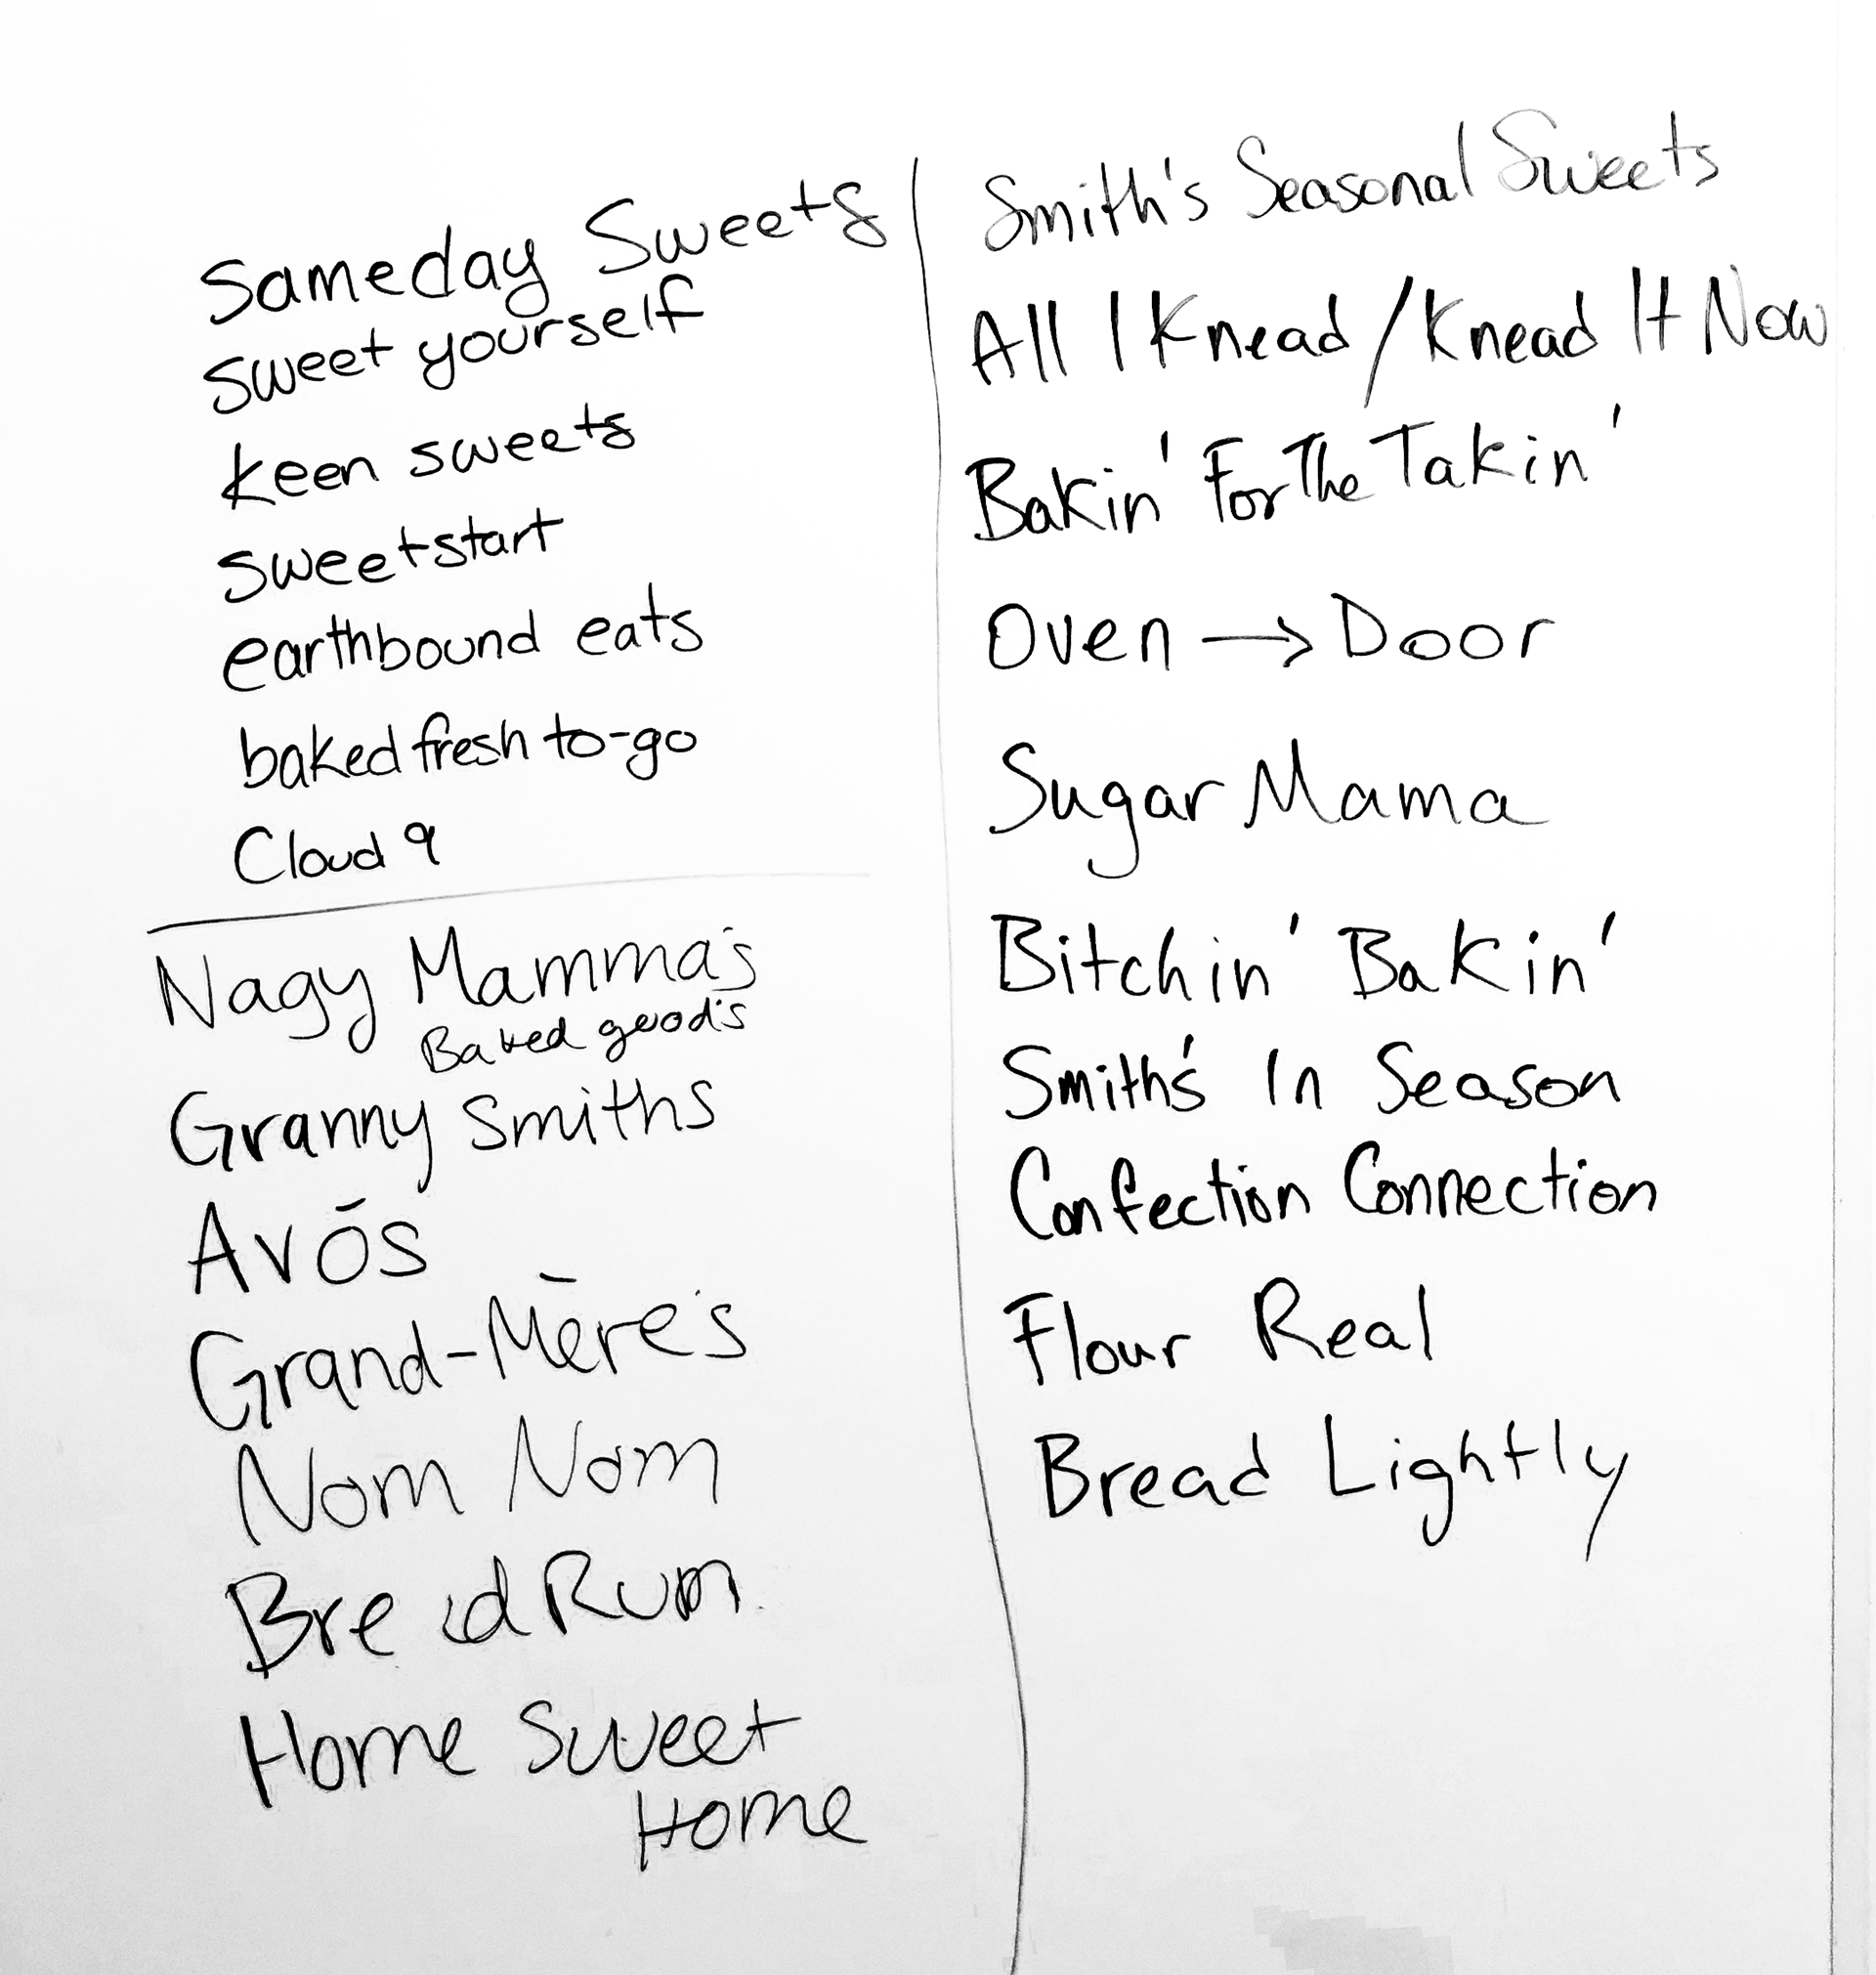 Sameday Sweets
sweet yourself
keen sweets
sweetstart
earthbound eats
baked fresh to-go
Cloud 9
Nagy Mamma's
Baked goods
Granny Smiths
Avō's
Grand-Mēre's
Nom Nom
Bread Rum
Home Sweet
Home
Smith's Seasonal Sweets
All I Knead/Knead It Now
Bakin' For The Takin'
Oven → Door
Sugar Mama
Bitchin' Bakin'
Smith's In Season
Confection Connection
Flour Real
Bread Lightly